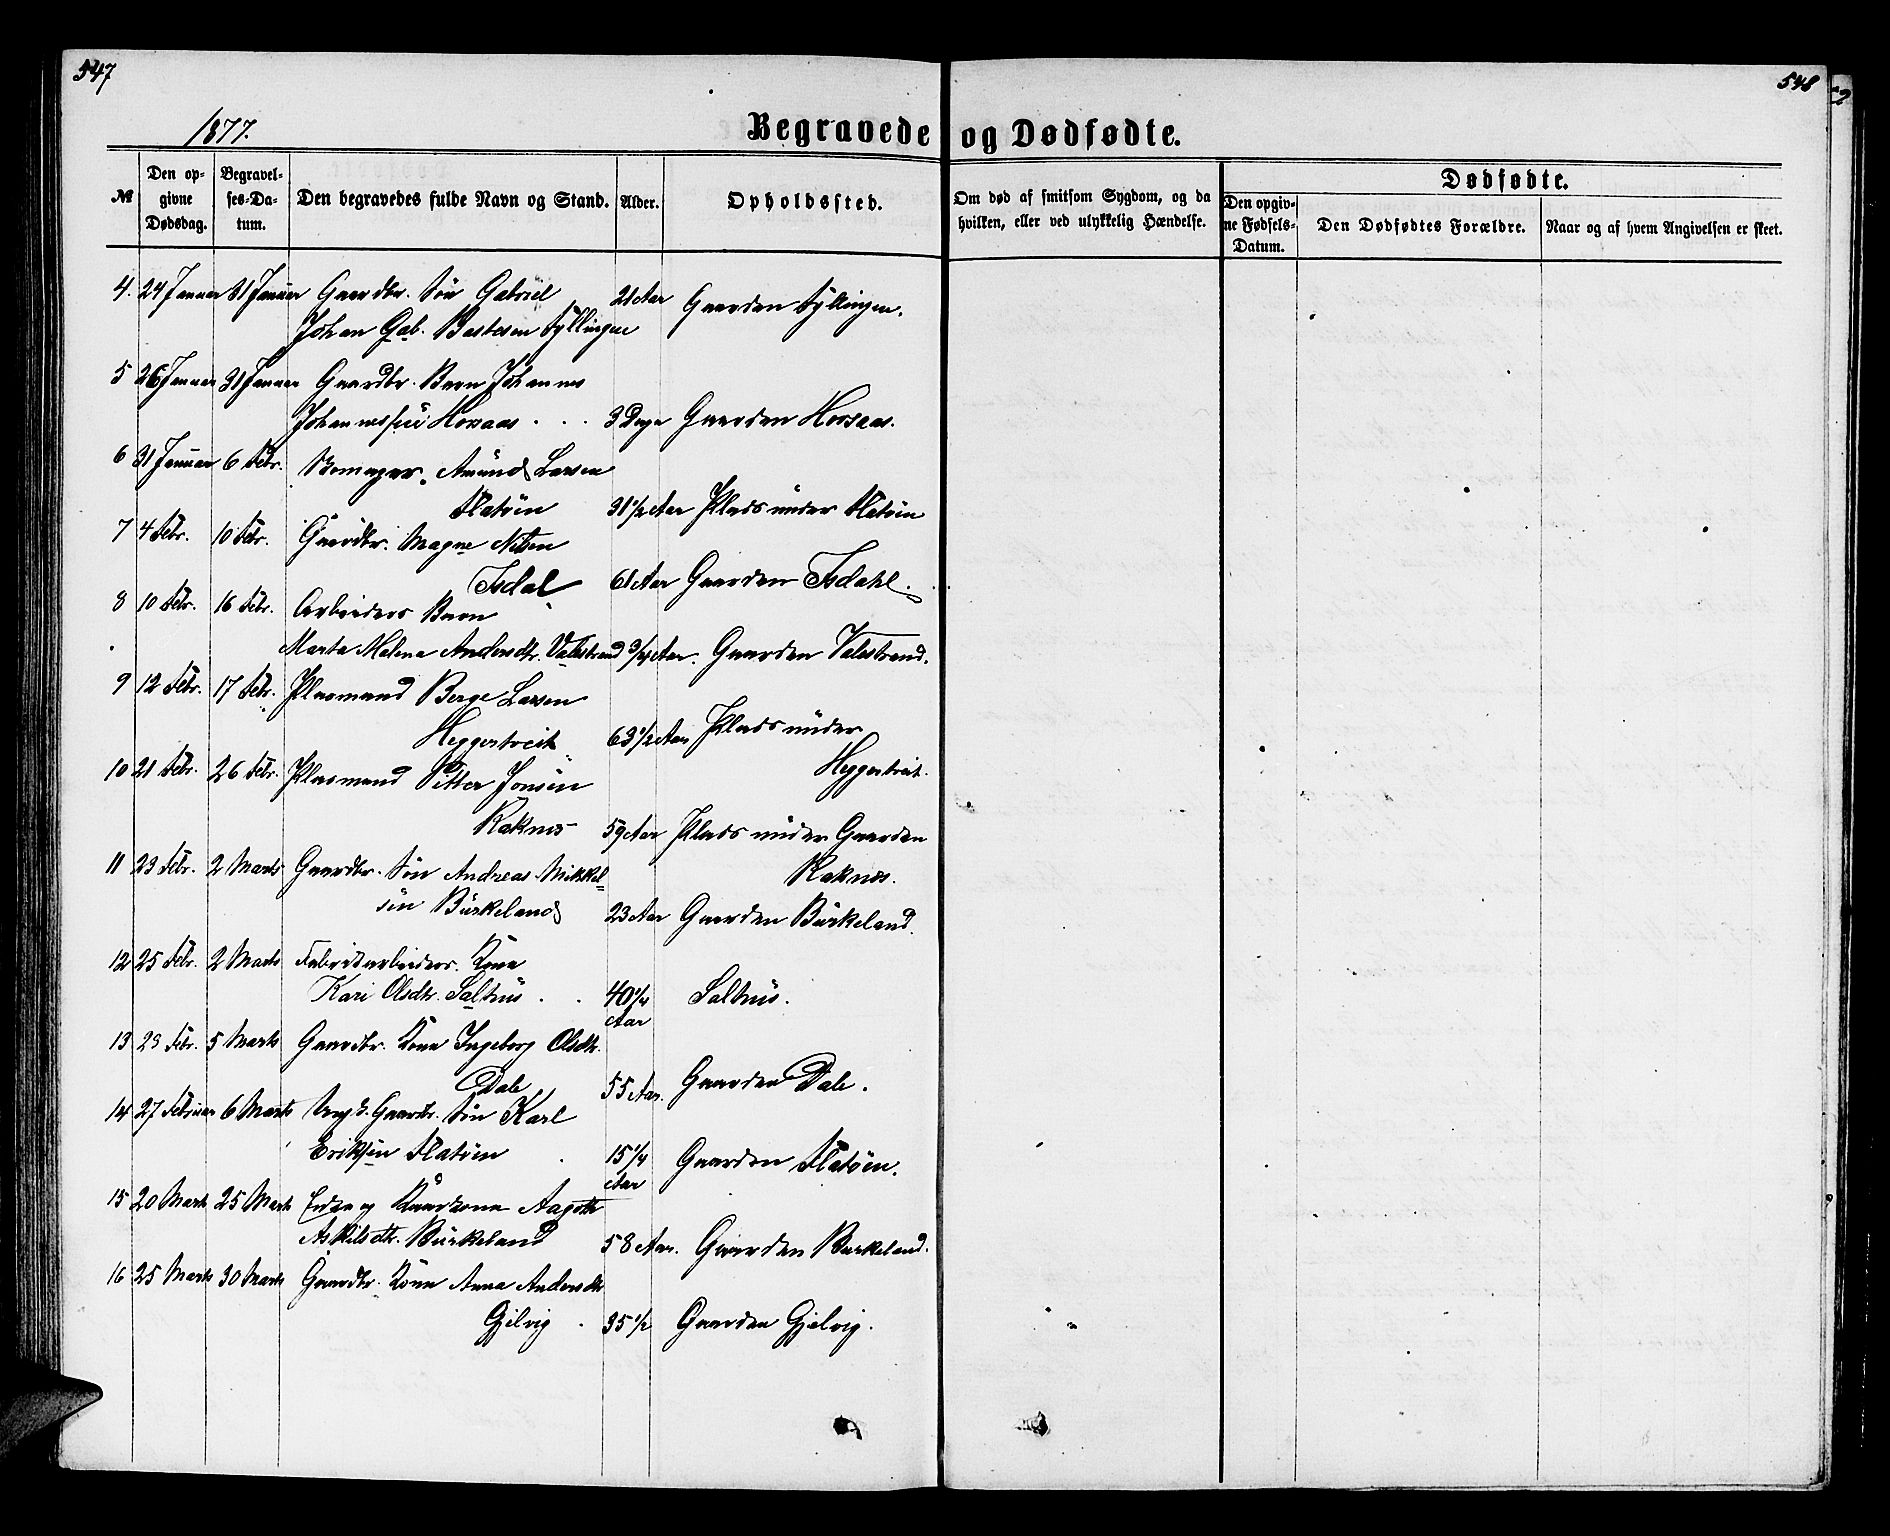 547
548
1877.
Begravede og Dødfødte.
№
Den op-
givne
Dødsdag.
Begravel-
ses-Da-
tum.
Den begravedes fulde Navn og Stand.
Alder.
Opholdssted.
Om død af smitsom Sygdom, og da
hvilken, eller ved ulykkelig Hændelse.
Dødfødte.
Den opgiv-
ne Fødsels-
Datum.
Den Dødfødtes Forældre.
Naar og af hvem Angivelsen er skeet.
4. 24 Januar 31 Januar Gaardbr. Søn Gabriel 21 Aar Gaarden Syllingen.
Johan Gab. Bastesen Syllingen
5 26 Januar 31 Januar Gaardbr. Barn Johannes
Johannessen Hovaas . . . 3 Dage Gaarden Hovaas.
6 31 Januar 6 Febr. Amund Larsen
Flatøen 31 1/2 Aar Plads under Flatøen
7 4 Febr. 10 Febr. Gaardbr. Magne Nilsen
Isdal 61 Aar Gaarden Isdahl.
8 10 Febr. 16 Febr. Arbeiders Barn
Marta Malena Andersdtr. Valestrand 3/4 Aar. Gaarden Valestrand.
9 12 Febr. 17 Febr. Plasmand Berge Larsen
Heggertveit 63 1/2 Aar Plads under
Heggertveit.
10 21 Febr. 26 Febr. Plasmand Petter Jonsen
Raknes 59 Aar Plads under Gaarden
Raknes.
11 23 Febr. 2 Marts Gaardbr. Søn Andreas Mikkel-
sen Birkeland 23 Aar Gaarden Birkeland.
12 25 Febr. 2 Marts Fabrikarbeiders Kone
Kari Olsdtr. Salhus . . 40 1/4 Salhus.
Aar
13 23 Febr. 5 Marts Gaardbr. Kone Ingeborg Olsdtr.
Dale 55 Aar. Gaarden Dale.
14 27 Februar 6 Marts Ung. Gaardbr. Søn Karl
Eriksen Flatøen . 15 1/4 Gaarden Flatøen.
Aar
15 20 Marts 25 Marts Enke og Kaarkone Aagothe
Askelsdtr. Birkeland 58 Aar. Gaarden Birkeland.
16 25 Marts 30 Marts Gaardbr. Kone Anna Andersdtr
Gjelvig . 35 1/2 Gaarden Gjelvig.